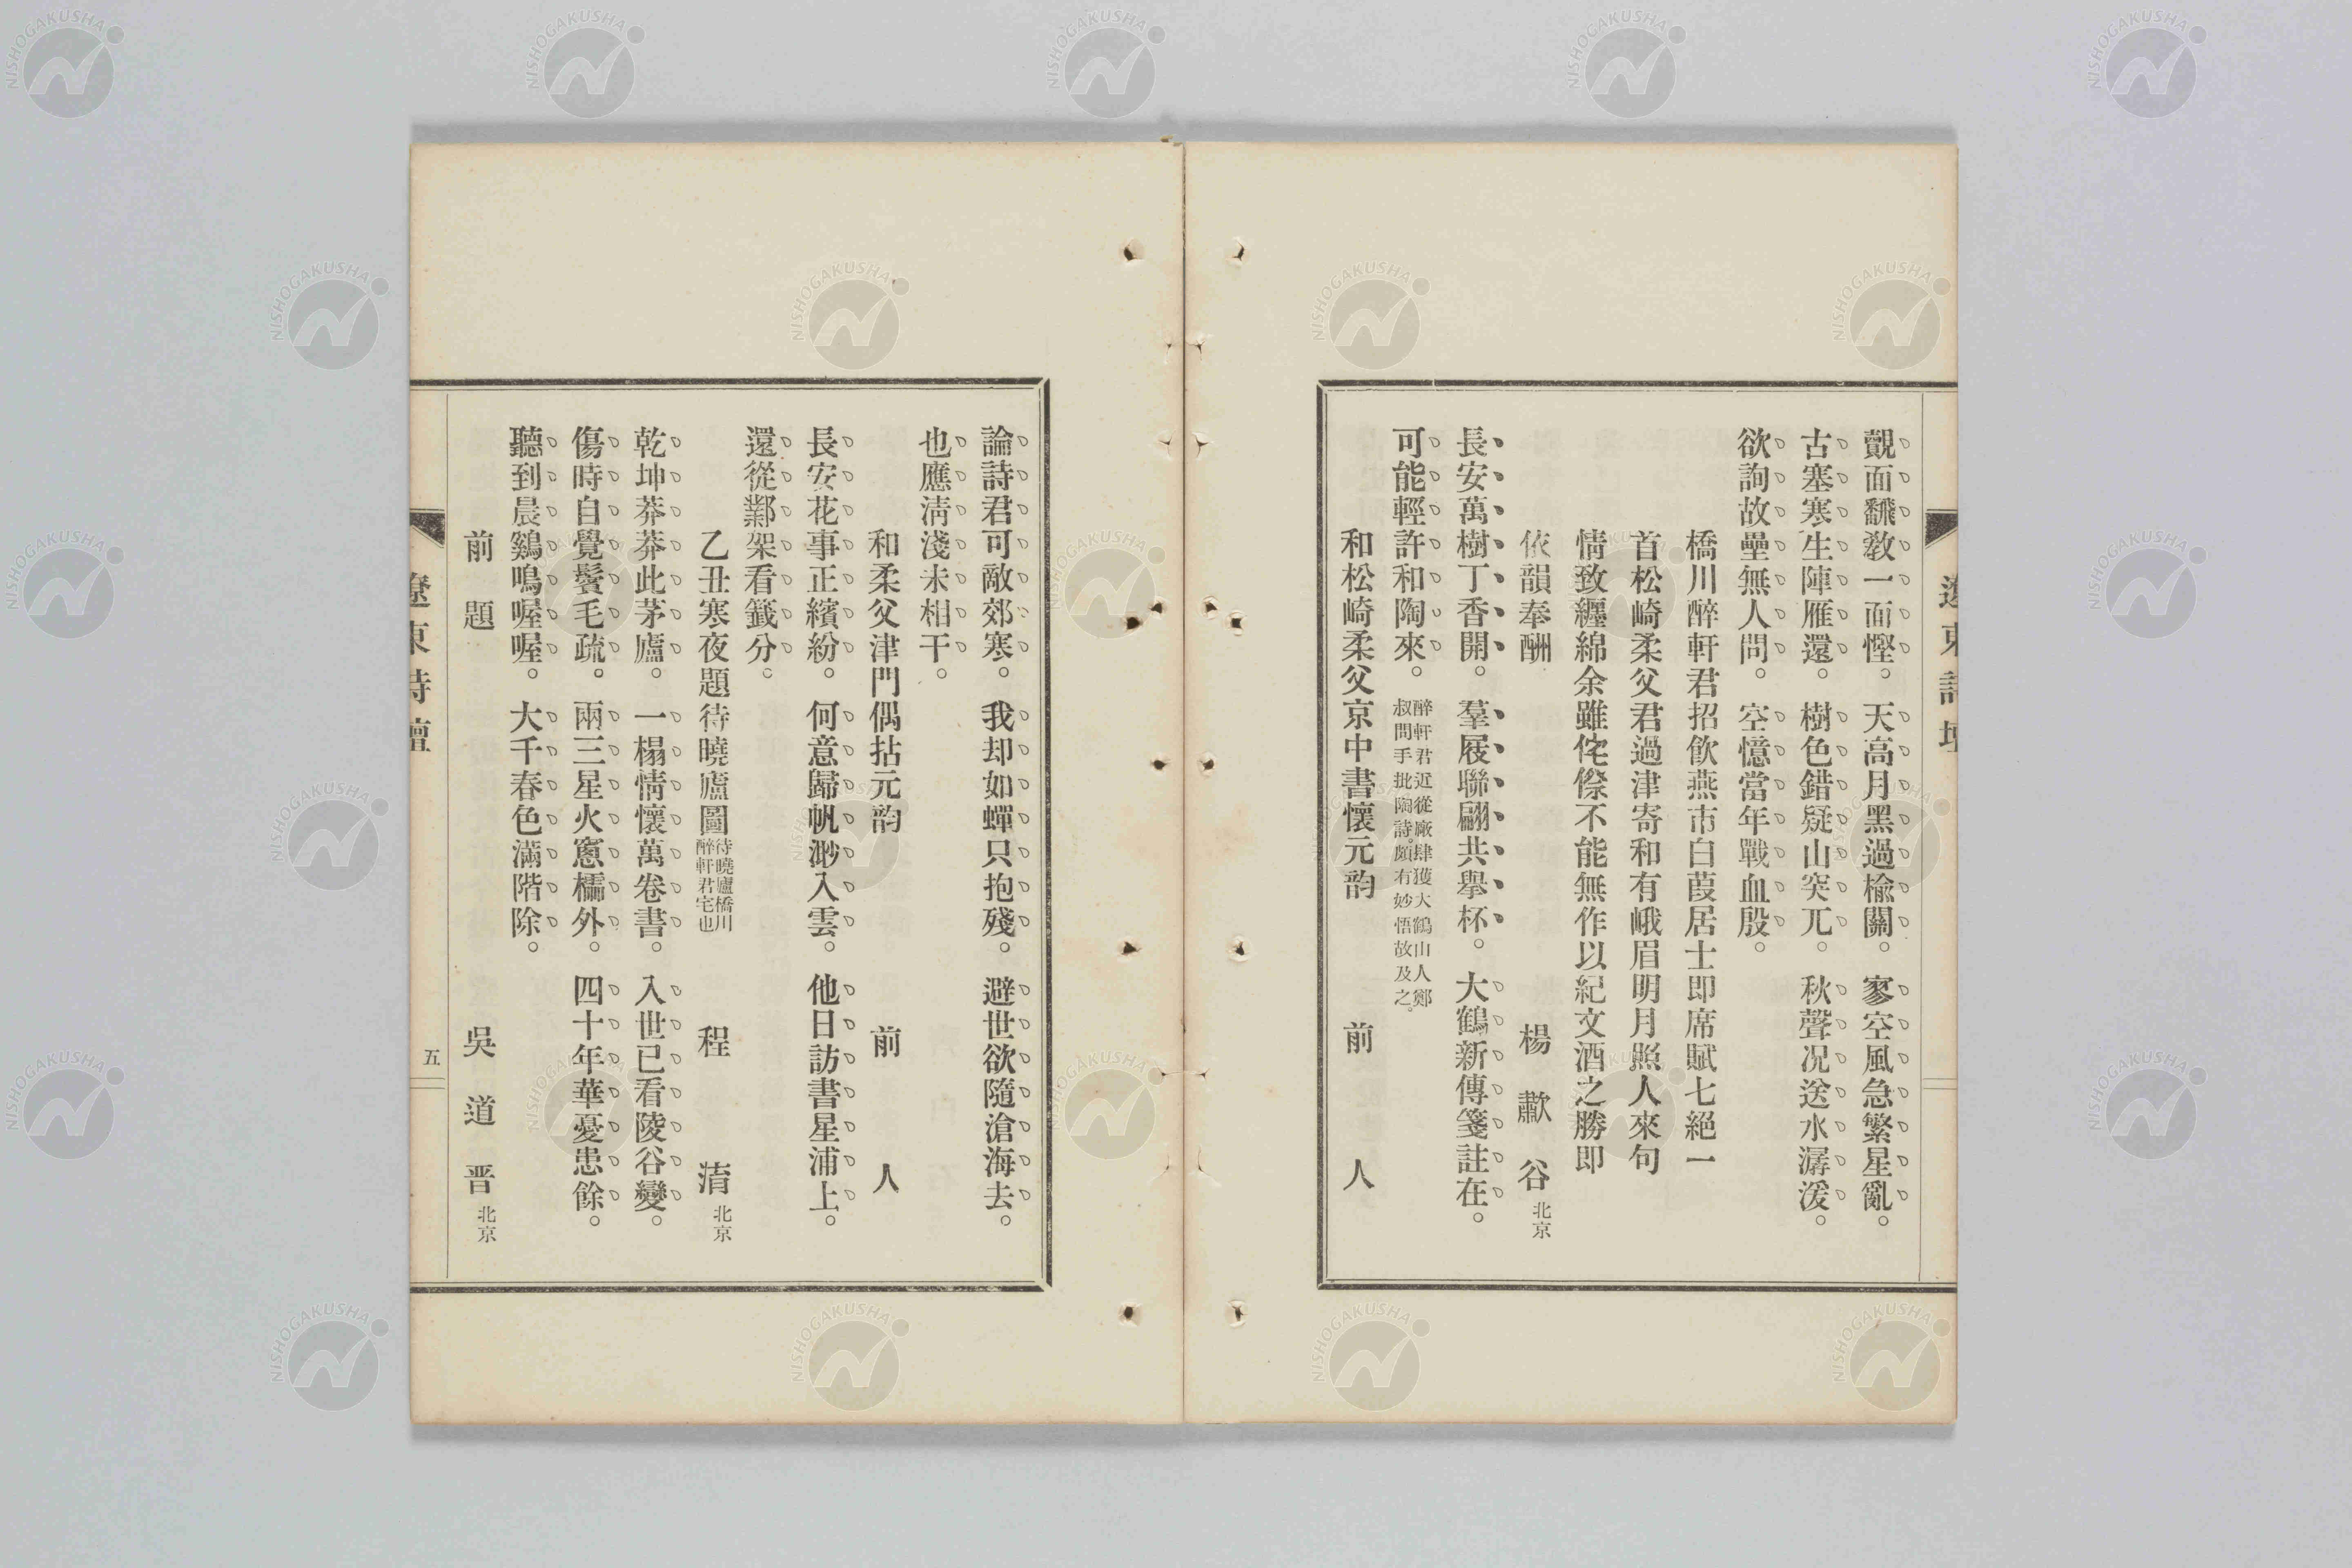 覿面飜教一面慳。天高月黑過楡關。寥空風急繁星亂。
古塞寒生陣雁還。樹色錯疑山突兀。秋聲况送水潺湲。
欲詢故壘無人問。空憶當年戰血殷。
橋川醉軒君招飮燕市白葭居士卽席賦七絕一
首松崎柔父君過津寄和有峨眉明月照人來句
情致纒綿余雖侘傺不能無作以紀文酒之勝卽
依韻奉酬 楊歗谷 北京
長安萬樹丁香開。羣屐聯翩共擧杯。大鶴新傳箋註在。
可能輕許和陶來。 醉軒君近從廠肆獲大鶴山人鄭
叔問手批陶詩。頗有妙悟故及之。
和松崎柔父京中書懷元韵 前人
論詩君可敵郊寒。我却如蟬只抱殘。避世欲隨滄海去。
也應淸淺未相干。
和柔父津門偶拈元韵 前人
長安花事正繽紛。何意歸帆渺入雲。他日訪書星浦上。
還從鄴架看籤分。
乙丑寒夜題待曉廬圖 待曉廬橋川
醉軒君宅也 程淯 北京
乾坤莽莽此茅廬。一榻情懷萬卷書。入世已看陵谷變。
傷時自覺鬢毛疏。兩三星火窻櫺外。四十年華憂患餘。
聽到晨鷄鳴喔喔。大千春色滿階除。
前題 吳道晋 北京
遼東詩壇
五
NISHOGAKUSHA